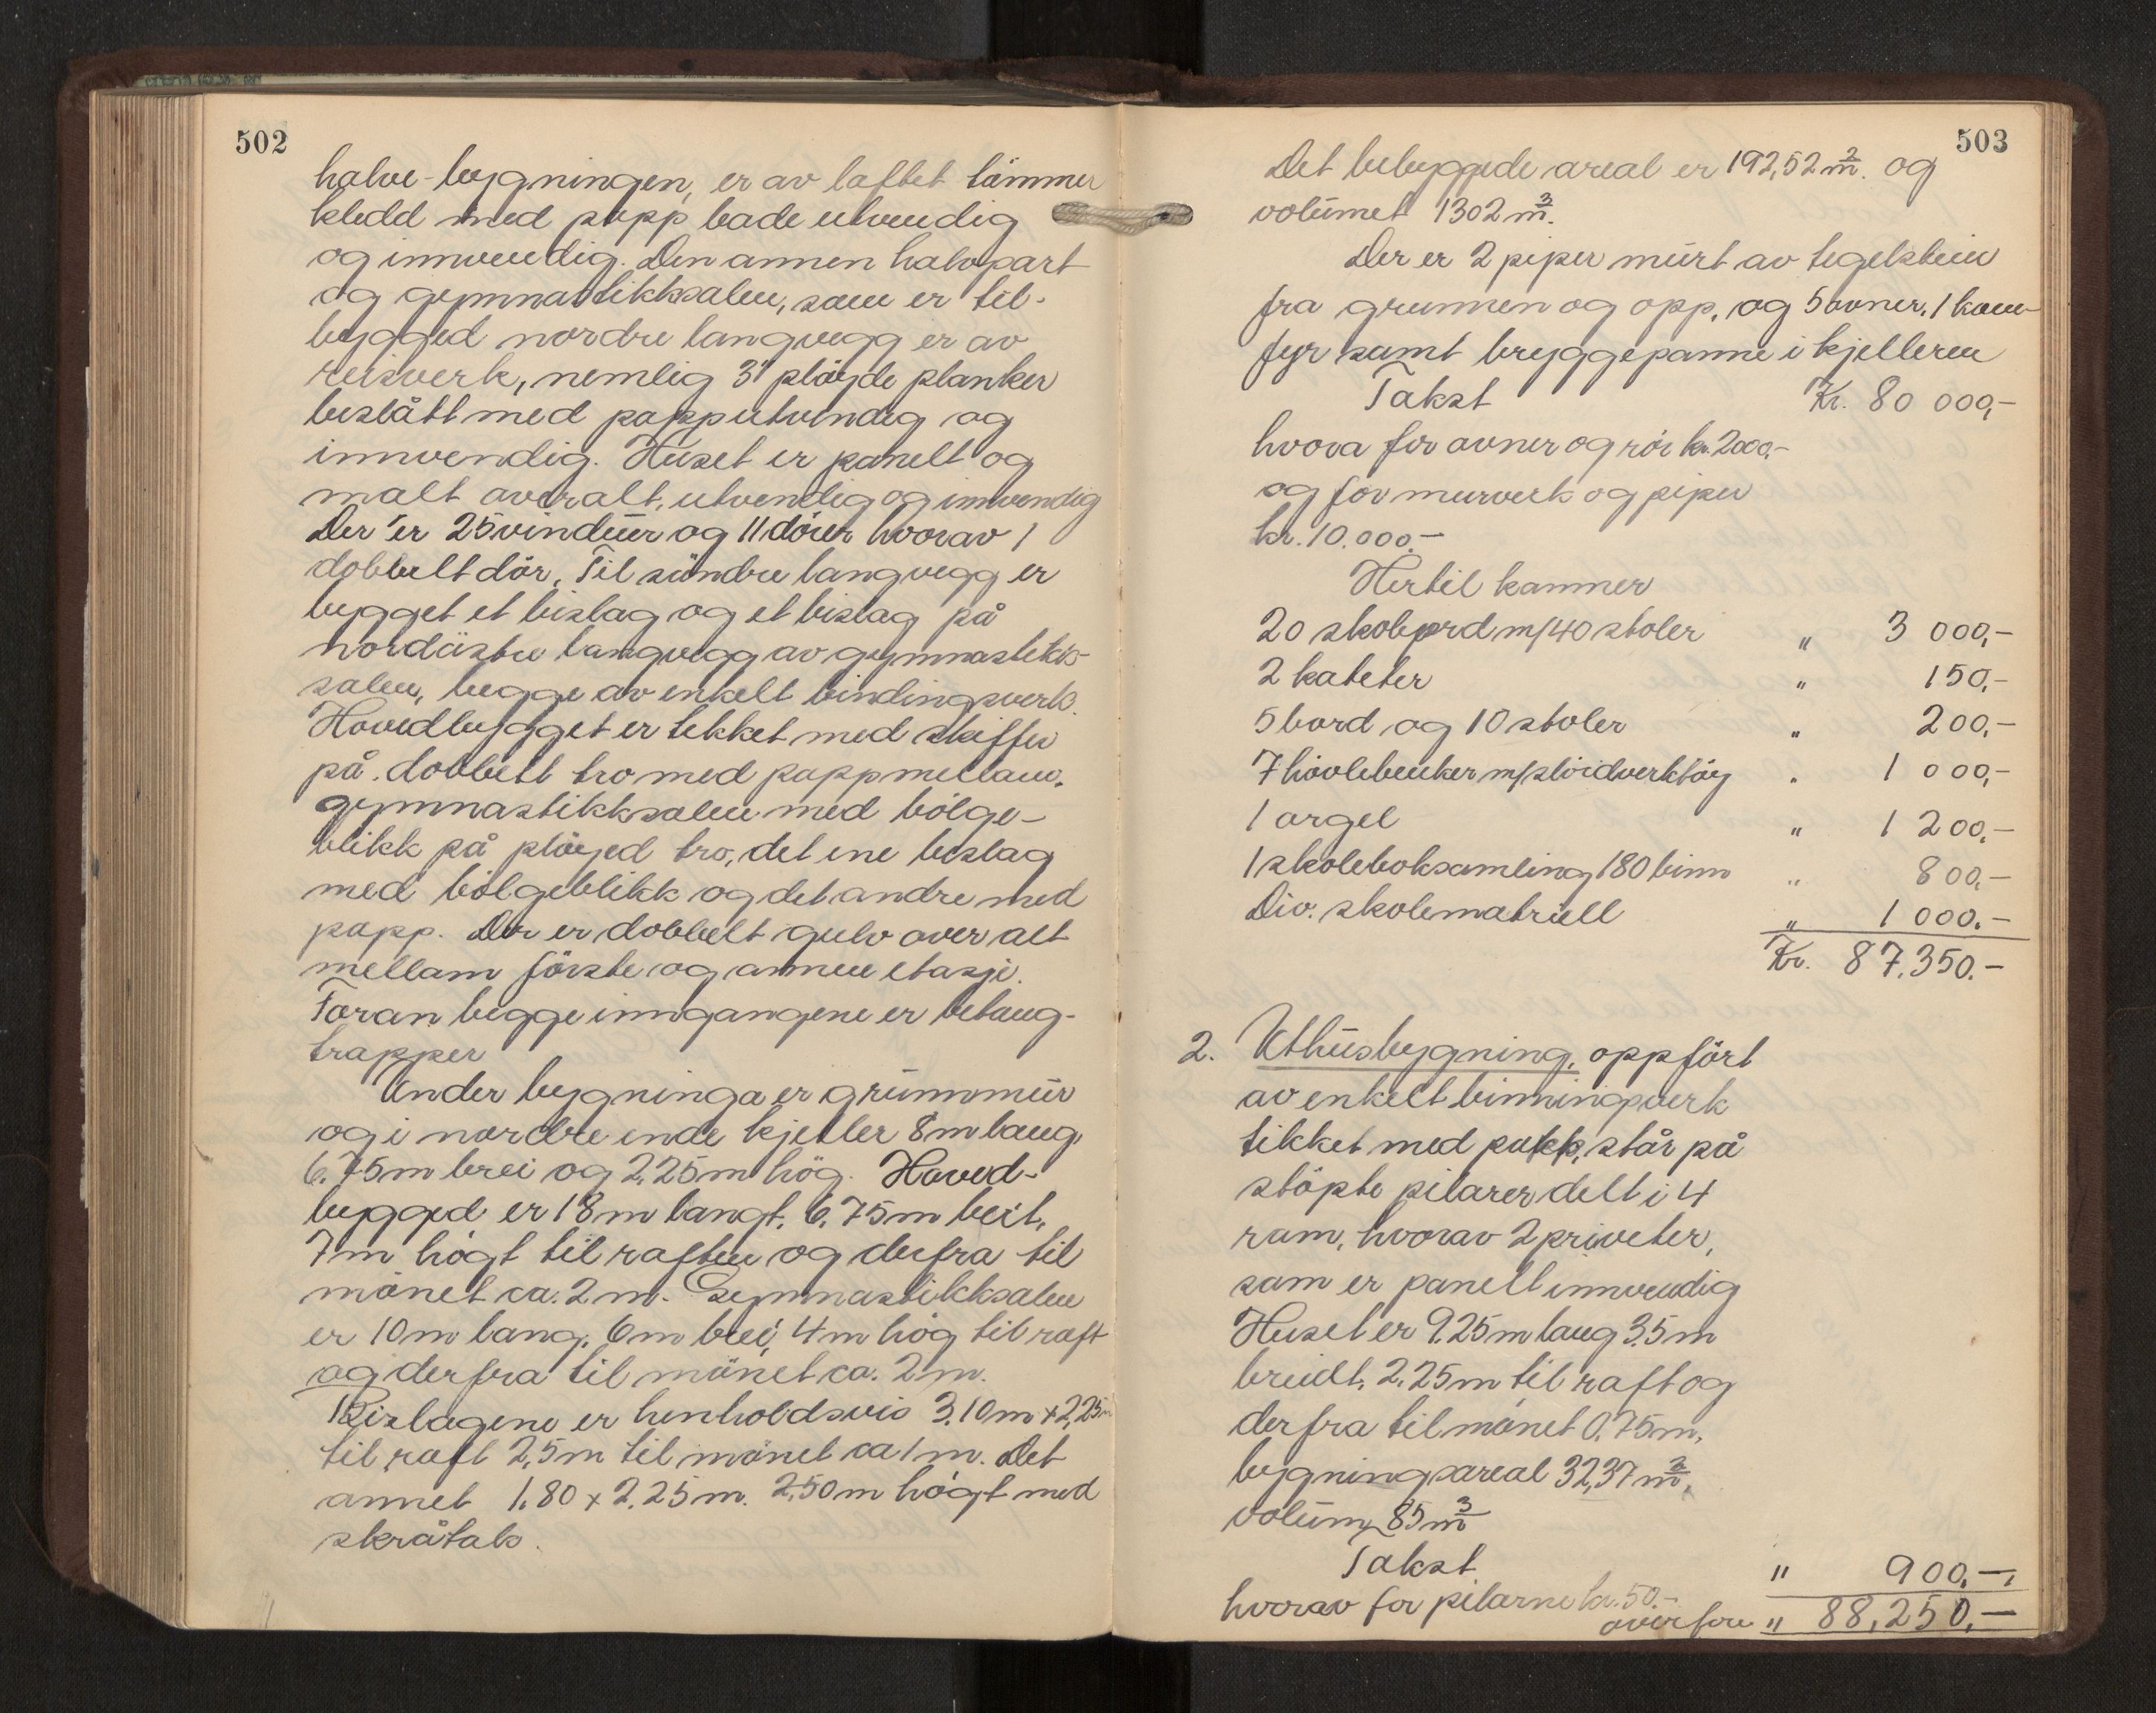 502
halve-bygningen, er av laftet tömmer
kledd med papp bade utvendig
og innvendig. Den annen halvpart
og gymnastikksalen, som er til-
bygged nordre langvegg er av
reisverk, nemlig 3" plöyde planker
beslått med papp utvendig og
innvendig. Huset er panelt og
malt overalt, utvendig og innvendig
Der er 25 vinduer og 11 dörer hvorav 1
dobbelt dör. Til söndre langvegg er
bygget et bislag og et bislag på
nordöstre langvegg av gymnastikk-
salen, begge av enkelt bindingsverk.
Hovedbygget er tekket med skiffer
på dobbelt tro med papp mellom.
gymnastikksalen med bölge-
blikk på plöyed tro, det ene beslag
med bölgeblikk og det andre med
papp. Der er dobbelt gulv over alt
mellom förste og annen etasje.
Foran begge inngangene er betong-
trapper
Under bygninga er grunnmur
og i nordre ende kjeller 8 m lang,
6.75m brei og 2,25m hög. Hoved-
bygged er 18 m langt, 6,75m beit,
7 m högt til raften og derfra til
mönet ca. 2 m. Gymnastikksalen
er 10 m lang, 6 m brei, 4 m hög til raft
og derfra til mönet ca. 2 m.
Bislagene er henholdsvis 3,10 m x 2,25m
til raft 2,5m til mönet ca 1 m. Det
annet 1,80 x 2,25 m. 2,50 m högt med
skråtak.
503
Det bebyggede areal er 192,52 m². og
volumet 1302 m³.
Der er 2 piper murt av tegelstein
fra grunnen og opp, og 5 ovner, 1 kom-
fyr samt bryggepanne i kjelleren
Takst Kr. 80 000,-
hvora for ovner og rör kr. 2000,-
og for murverk og piper
kr. 10.000.-
Hertil kommer
20 skolepord m/40 stoler " 3 000,-
2 kateter " 150,-
5 bord og 10 stoler " 200,-
7 hövlebenker m/slöidverktöy " 1 000,-
1 orgel " 1 200,-
1 skoleboksamling 180 binn " 800,-
Div. skolematriell " 1 000.-
Kr. 87.350.-
2. Uthusbygning, oppfört
av enkelt binningsverk
tikket med papp, står på
stöpte pilarer delt i 4
rum, hvorav 2 priveter,
som er panelt innvendig
Huset er 9.25 m laug 3.5 m
breidt, 2.25 m til raft og
derfra til mönet 0,75 m,
bygningsareal 32,37 m²,
volum 85 m³
Takst " 900.-,
hvorav for pilarne kr. 50.-
overföre " 88,250,-